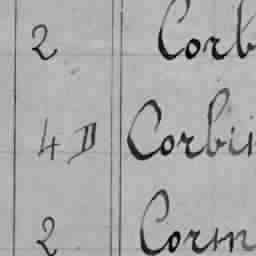 2 Corb
4 D Corbi
2 Corm